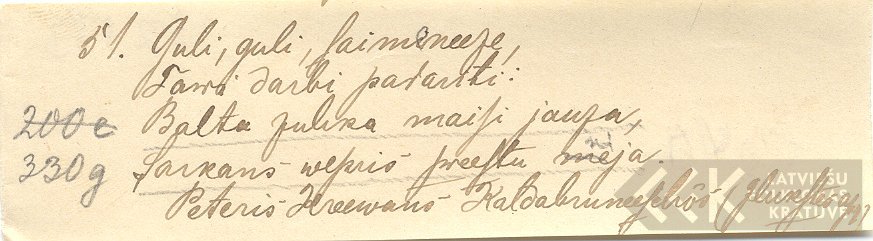 51. Guli, guli, saimeneeze,
Tawi darbi padariti:
200c Balta zuhka maisi jauza,
330g Sarkans wepris preestu mija.
Peteris Kreewans Kaldabruneeschôs (Ilukstes apr.)
LATVIEŠU
FOLKLORAS
KRĀTUVE